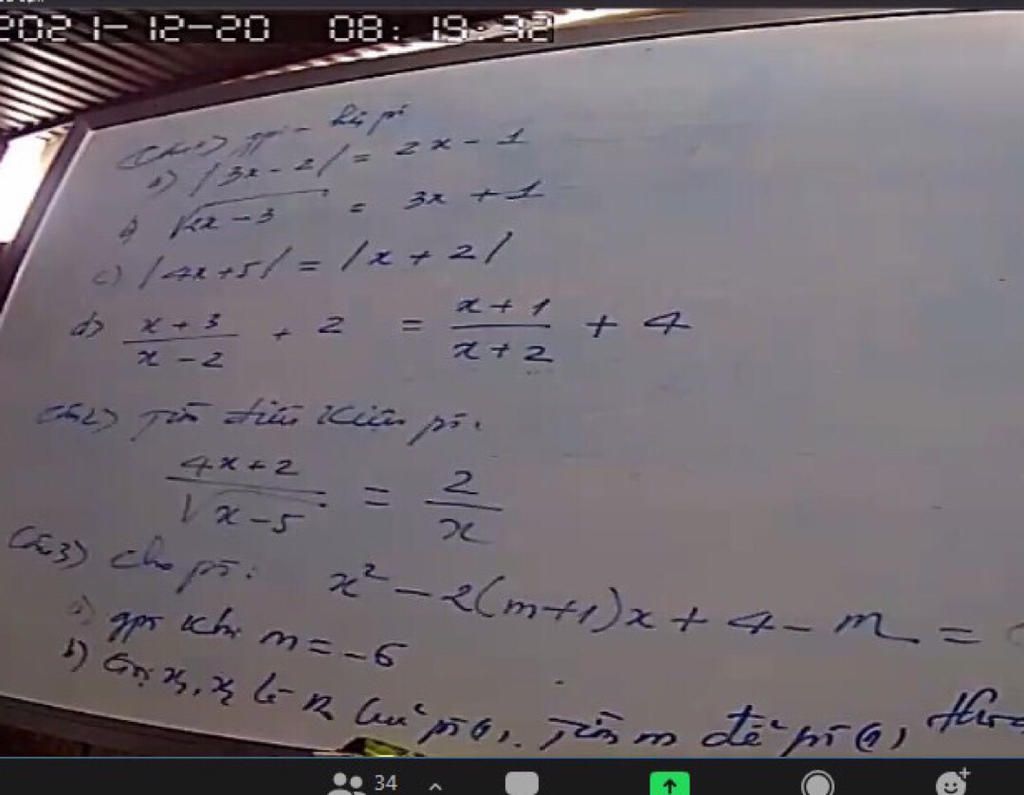 2021-12-20 08:19:32
Câu 1) gpt - hệ pt
a) |3x-2| = 2x-1
b) √2x-3 = 3x+1
c) |4x+5| = |x+2|
d) x+3/x-2 + 2 = x+1/x+2 + 4
Câu 2) Tìm điều kiện pt:
4x+2/√x-5 = 2/x
Câu 3) cho pt: x²-2(m+1)x+4-m =
a) gpt khi m=-6
b) Gọi x₁, x₂ là n₀ của pt(1). Tìm m để pt(1)
34